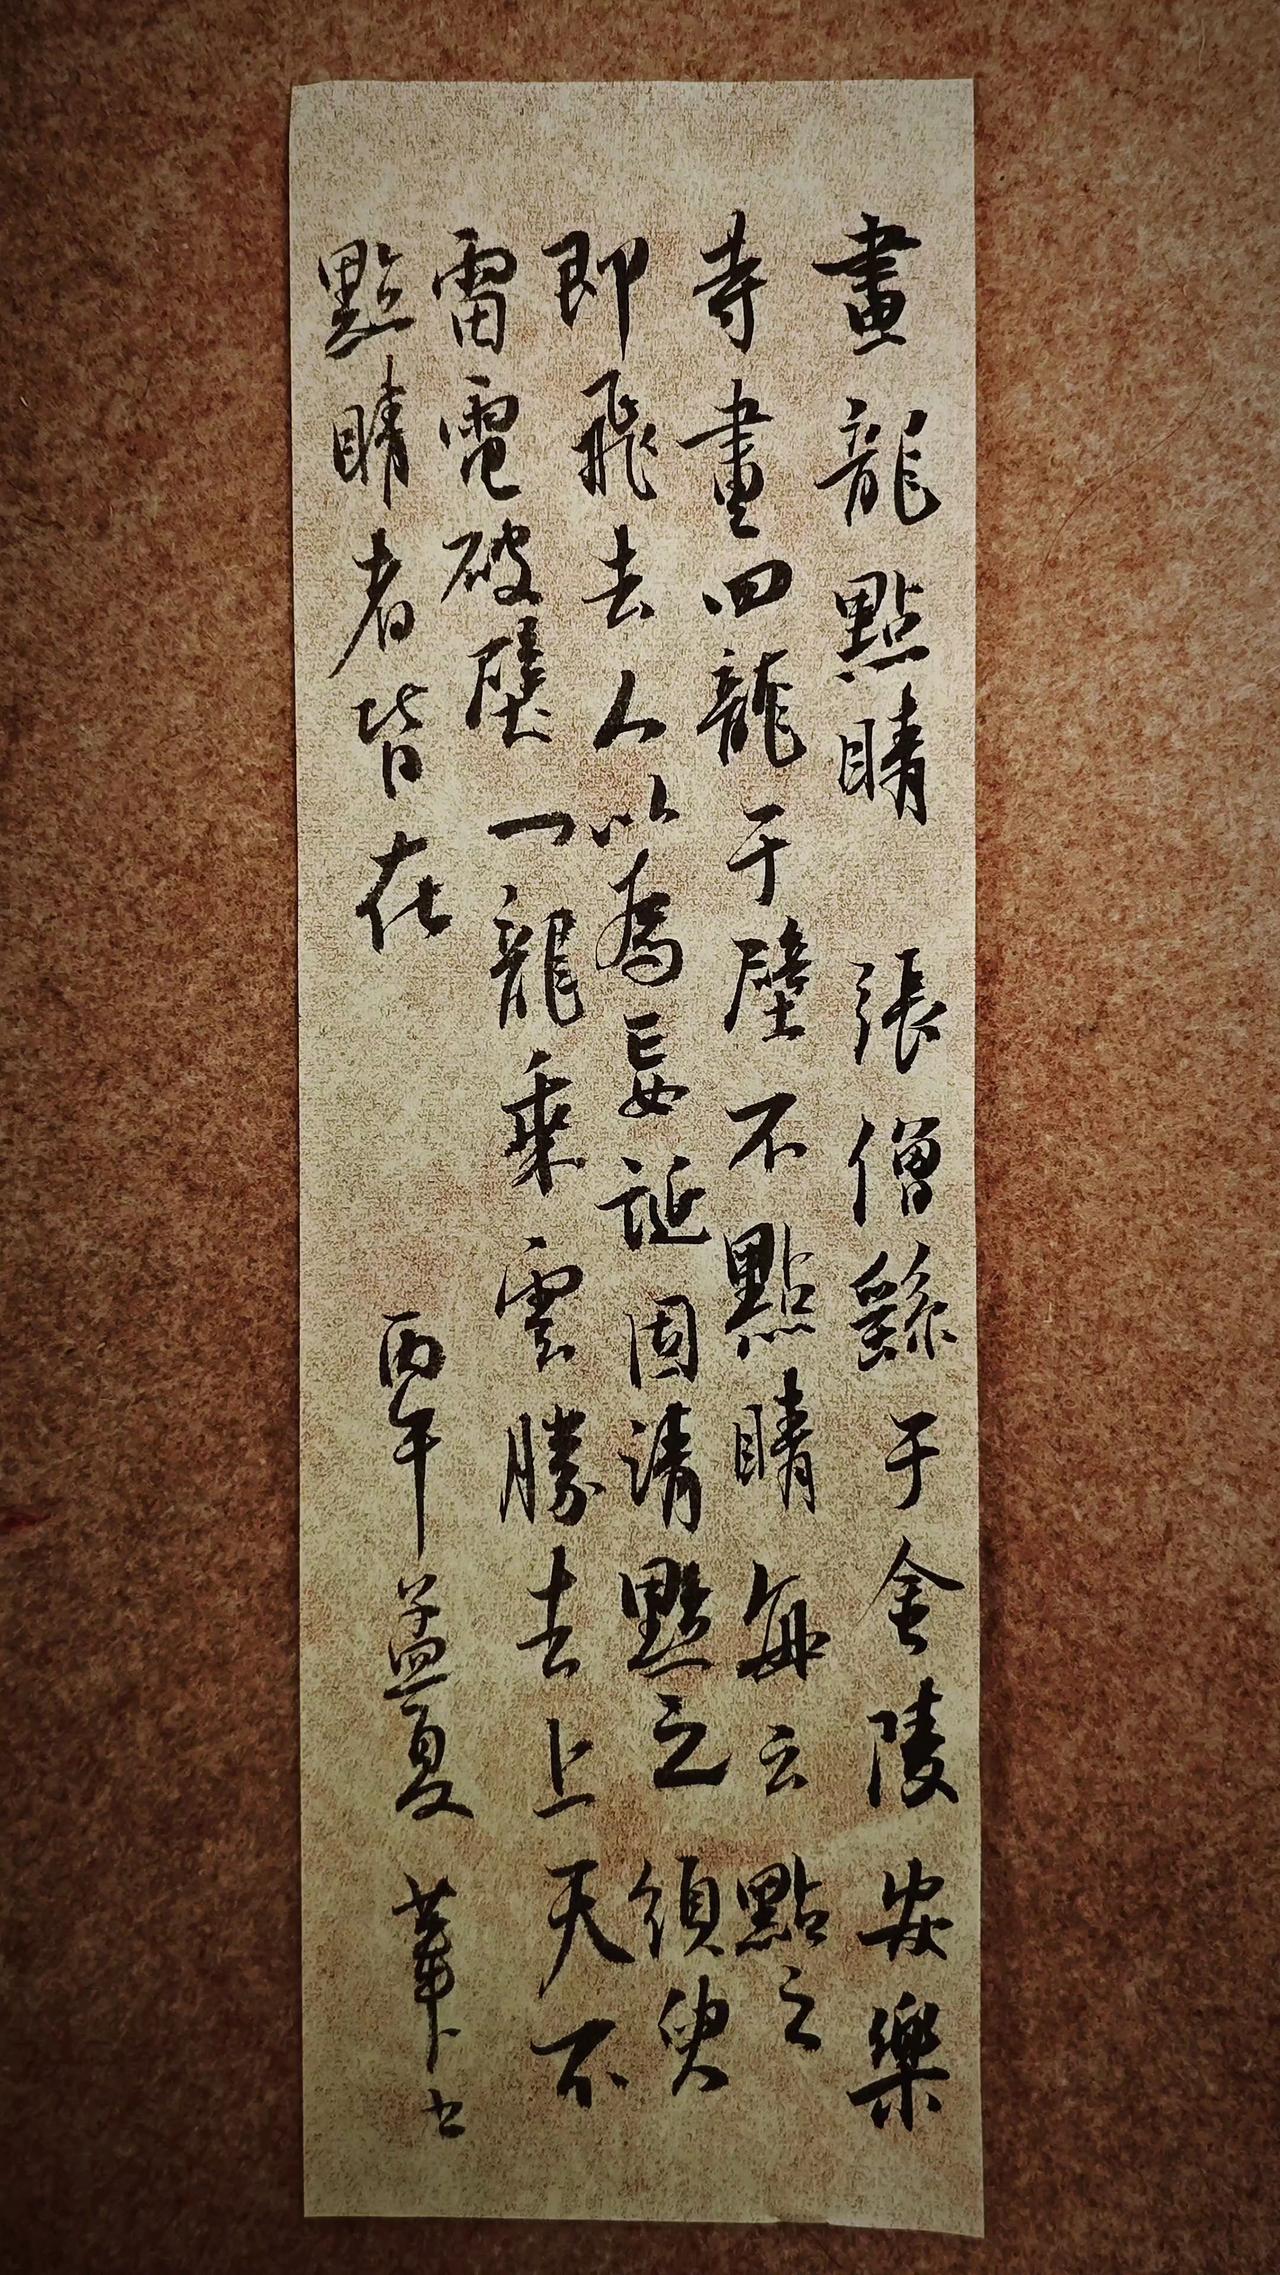 畫龍點睛 張僧繇于金陵安樂
寺畫四龍于壁不點睛每云點之
即飛去人以為妄誕固請點之須臾
雷電破壁一龍乘雲騰去上天不
點睛者皆在
丙午孟夏 華書